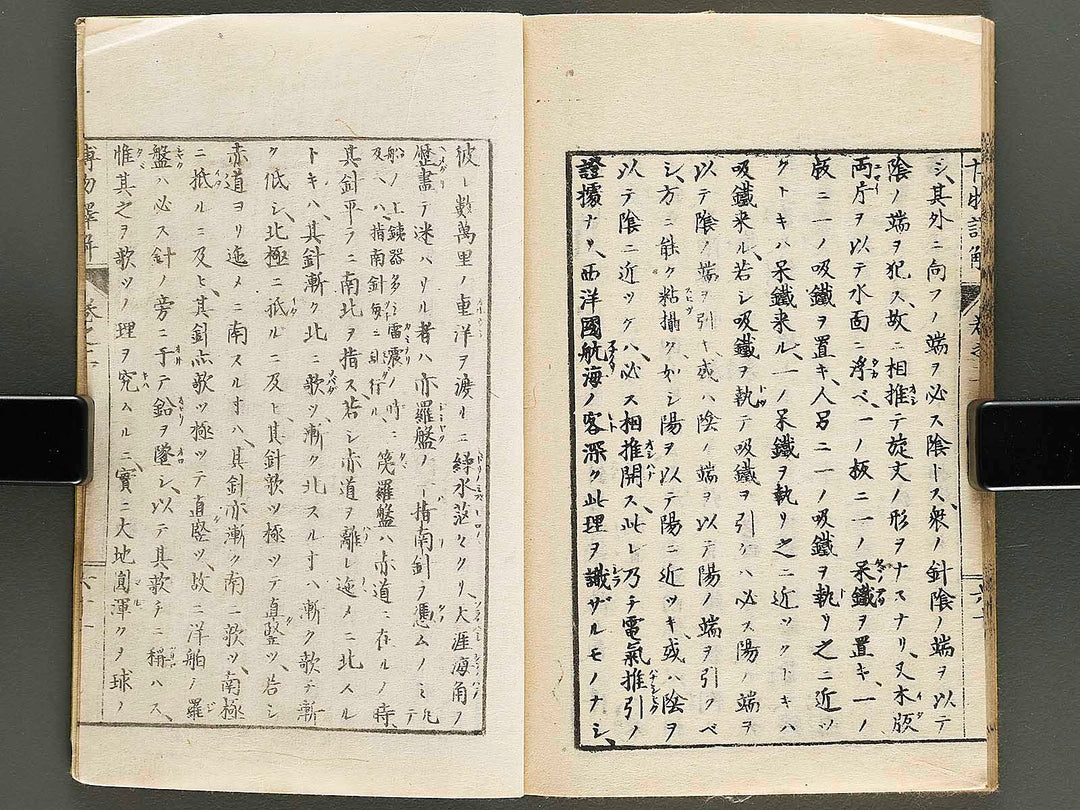 シ、其外ニ向フノ端ヲ必ス陰トス、衆ノ針陰ノ端ヲ以テ
陰ノ端ヲ犯ス、故ニ相推テ旋丈ノ形ヲナスナリ、又木版
両片ヲ以テ水面ニ浮ベ、一ノ板ニ一ノ呆鐵ヲ置キ、一ノ
版ニ一ノ吸鐵ヲ置キ、人另ニ一ノ吸鐵ヲ執リ之ニ近ツ
クトキハ呆鐵来ル、一ノ呆鐵ヲ執リ之ニ近ツクトキハ
吸鐵来ル、若シ吸鐵ヲ執テ吸鐵ヲ引ケハ必ス陽ノ端ヲ
以テ陰ノ端ヲ引キ或ハ陰ノ端ヲ以テ陽ノ端ヲ引クベ
シ、方ニ能ク粘攝ク、如シ陽ヲ以テ陽ニ近ツキ、或ハ陰ヲ
以テ陰ニ近ツクハ、必ス相推開ス、此レ乃チ電氣推引ノ
證據ナリ、西洋國航海ノ客深ク此理ヲ識ザルモノナシ、
彼ー數萬里ノ重洋ヲ渡ーニ繰水茫々クリ、大涯海角ノ
盤畫テ迷ハサル者ハ亦羅盤ノ一指南針ヲ憑ムノミ、凡テ
船ノ上銕器多ク、雷震ノ時ニ
及ヘハ、指南針毎ニ
羅盤ハ赤道ニ在ルノ時、
其針平ラニ南北ヲ指ス、若シ赤道ヲ離レ迤メニ北スル
トキハ、其針漸ク北ニ歌ツ、漸ク北スル寸ハ漸ク歌チ漸
ク低シ、北極ニ抵ルニ及ヒ、其針歌ツ極ツテ直竪ツ、若シ
赤道ヨリ迤メニ南スル寸ハ、其針亦漸ク南ニ歌ツ、南極
ニ抵ルニ及ヒ、其針亦歌ツ極ツテ直竪ツ、故ニ洋舶ノ羅
盤ハ必ス針ノ旁ニ于テ鉛ヲ墜シ、以テ其歌チニ稱ハス、
惟其之ヲ歌ツノ理ヲ究ムルニ、實ニ大地圓渾クヲ球ノ
博物譯解 巻之二